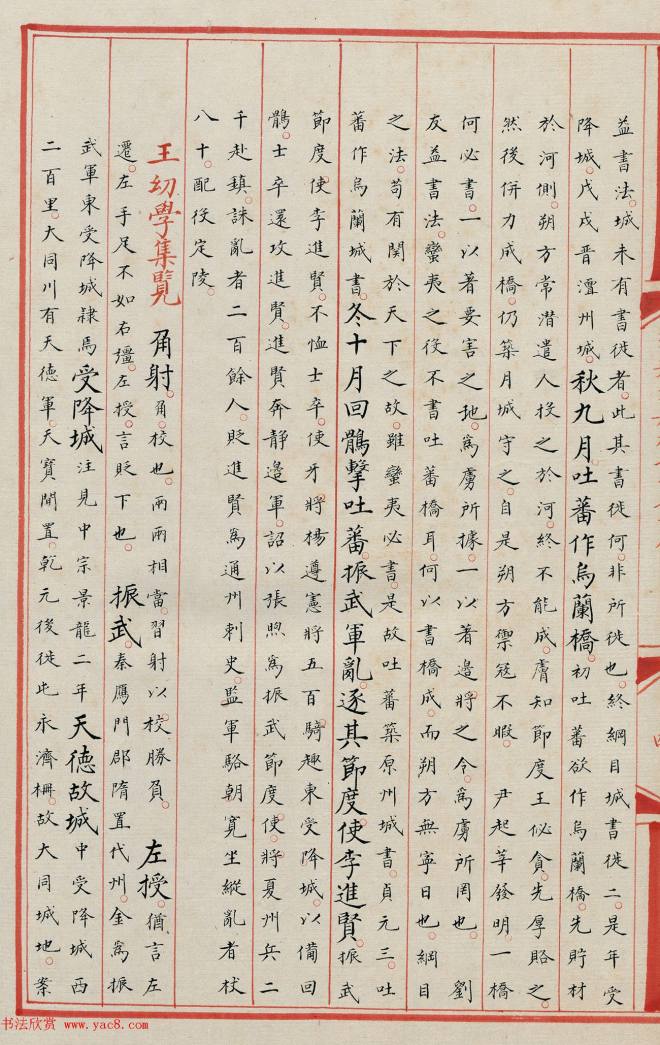 益書法。城未有書徙者。此其書徙何。非所徙也。終綱目城書徙二。是年受
降城。戊戌晋澶州城。秋九月。吐蕃作烏蘭橋。初吐蕃欲作烏蘭橋。先貯材
於河側。朔方常潜遣人投之於河。終不能成。虜知節度王佖貪。先厚賂之。
然後併力成橋。仍築月城守之。自是朔方禦寇不暇。 尹起莘發明。一橋
何必書。一以著要害之地。爲虜所據。一以著邉將之令。爲虜所罔也。 劉
友益書法。蠻夷之役不書吐蕃橋耳。何以書橋成。而朔方無寧日也。綱目
之法。苟有関於天下之故。雖蠻夷必書。是故吐蕃築原州城書。貞元三。吐
蕃作烏蘭城書。冬十月回鶻擊吐蕃。振武軍亂。逐其節度使李進賢。振武
節度使李進賢。不恤士卒。使牙將楊遵憲將五百騎趣東受降城。以備回
鶻。士卒還攻進賢。進賢奔静邉軍。詔以張煦爲振武節度使。將夏州兵二
千赴鎮。誅亂者二百餘人。貶進賢爲通州刺史。監軍駱朝寬坐縱亂者杖
八十。配役定陵。
王幼學集覽 角射。角。校也。兩兩相當。習射以校勝負。 左授。猶言左
遷。左手足不如右彊。左授。言貶下也。 振武。秦鴈門郡隋置代州。金爲振
武軍東受降城隷焉受降城注見中宗景龍二年天德故城中受降城西
二百里。大同川有天德軍。天寳間置。乾元後徙屯永濟柵。故大同城地。案
书法欣赏 www.yac8.com